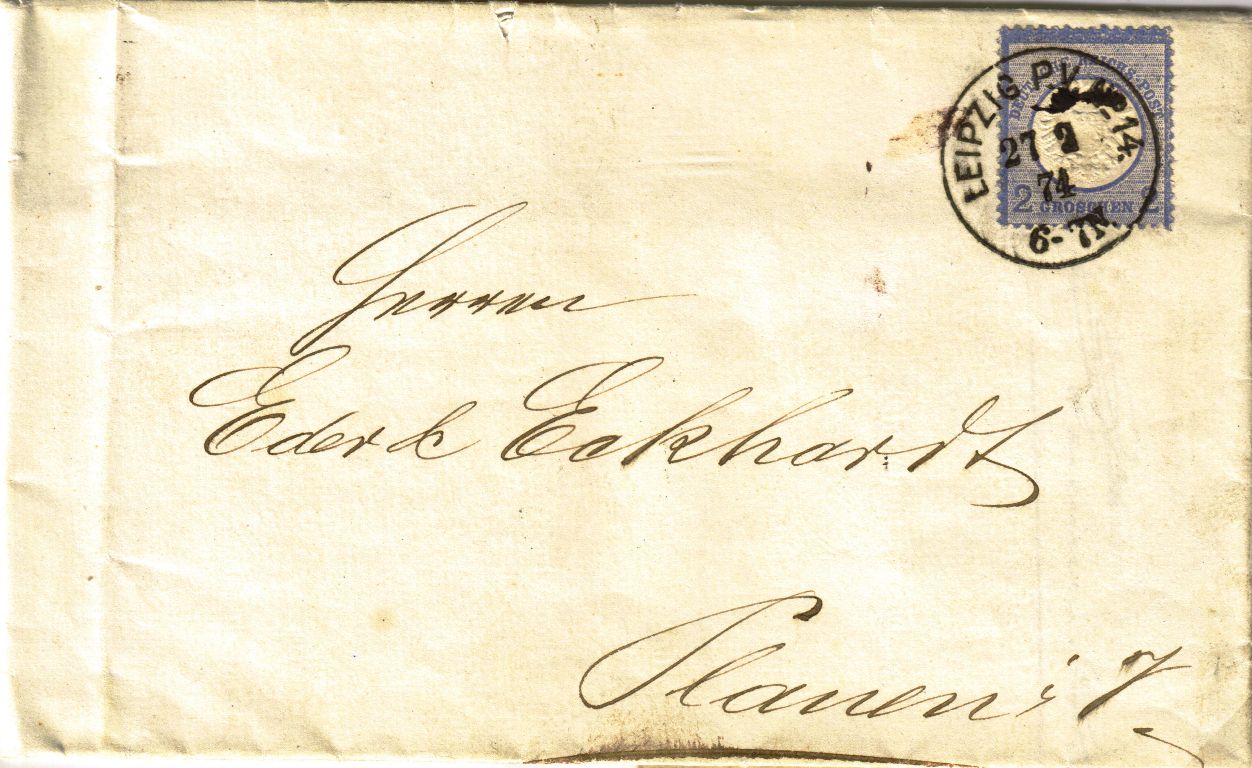 DEUTSCHE REICHS-POST
2 GROSCHEN 2
LEIPZIG P.V. No 14.
27 2
74
6-7N.
Herren
Eder & Eckhardt
Plauen i/V